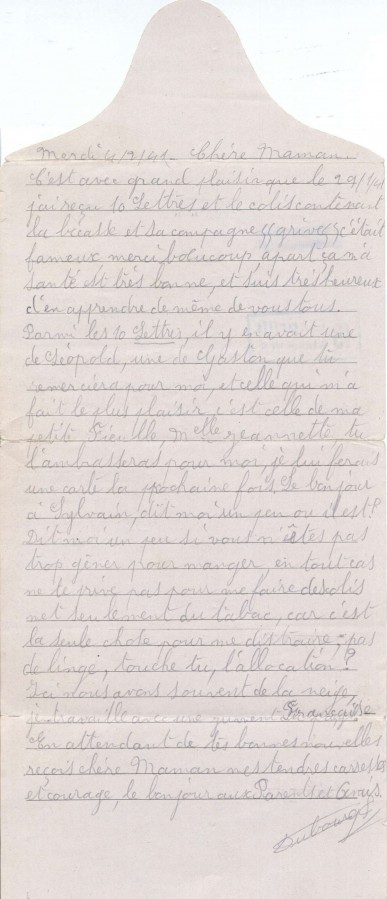 Mardi 4/2/41 Chère Maman.
C'est avec grand plaisir que le 29/1/41
j'ai reçu 10 Lettres et le colis contenant
la bécasse et sa compagne (( grive )) c'était
fameux merci beaucoup apart ça m'a
santé est très bonne, et suis très heureux
d'en apprendre de même de vous tous.
Parmi les 10 Lettres, il y en avait une
de Léopold, une de Gaston que tu
remerciera pour moi, et celle qui m'a
fait le plus plaisir, c'est celle de ma
petite Fieulle, Melle jeannette tu
l'ambrasseras pour moi, je lui ferais
une carte la prochaine fois, Le bonjour
à Sylvain, dit moi un peu ou il est?
Dit moi un peu si vous n'êtes pas
trop gêner pour manger, en tout cas
ne te prive pas pour me faire des colis
met seulement du tabac, car c'est
la seule chose pour me distraire, pas
de linge, touche tu, l'allocation?
Ici nous avons souvent de la neige,
je travaille avec une jument Française
En attendant de tes bonnes nouvelles
reçois chère Maman mes tendres caresses
et courage, le bonjour aux Parents et
Dubourg